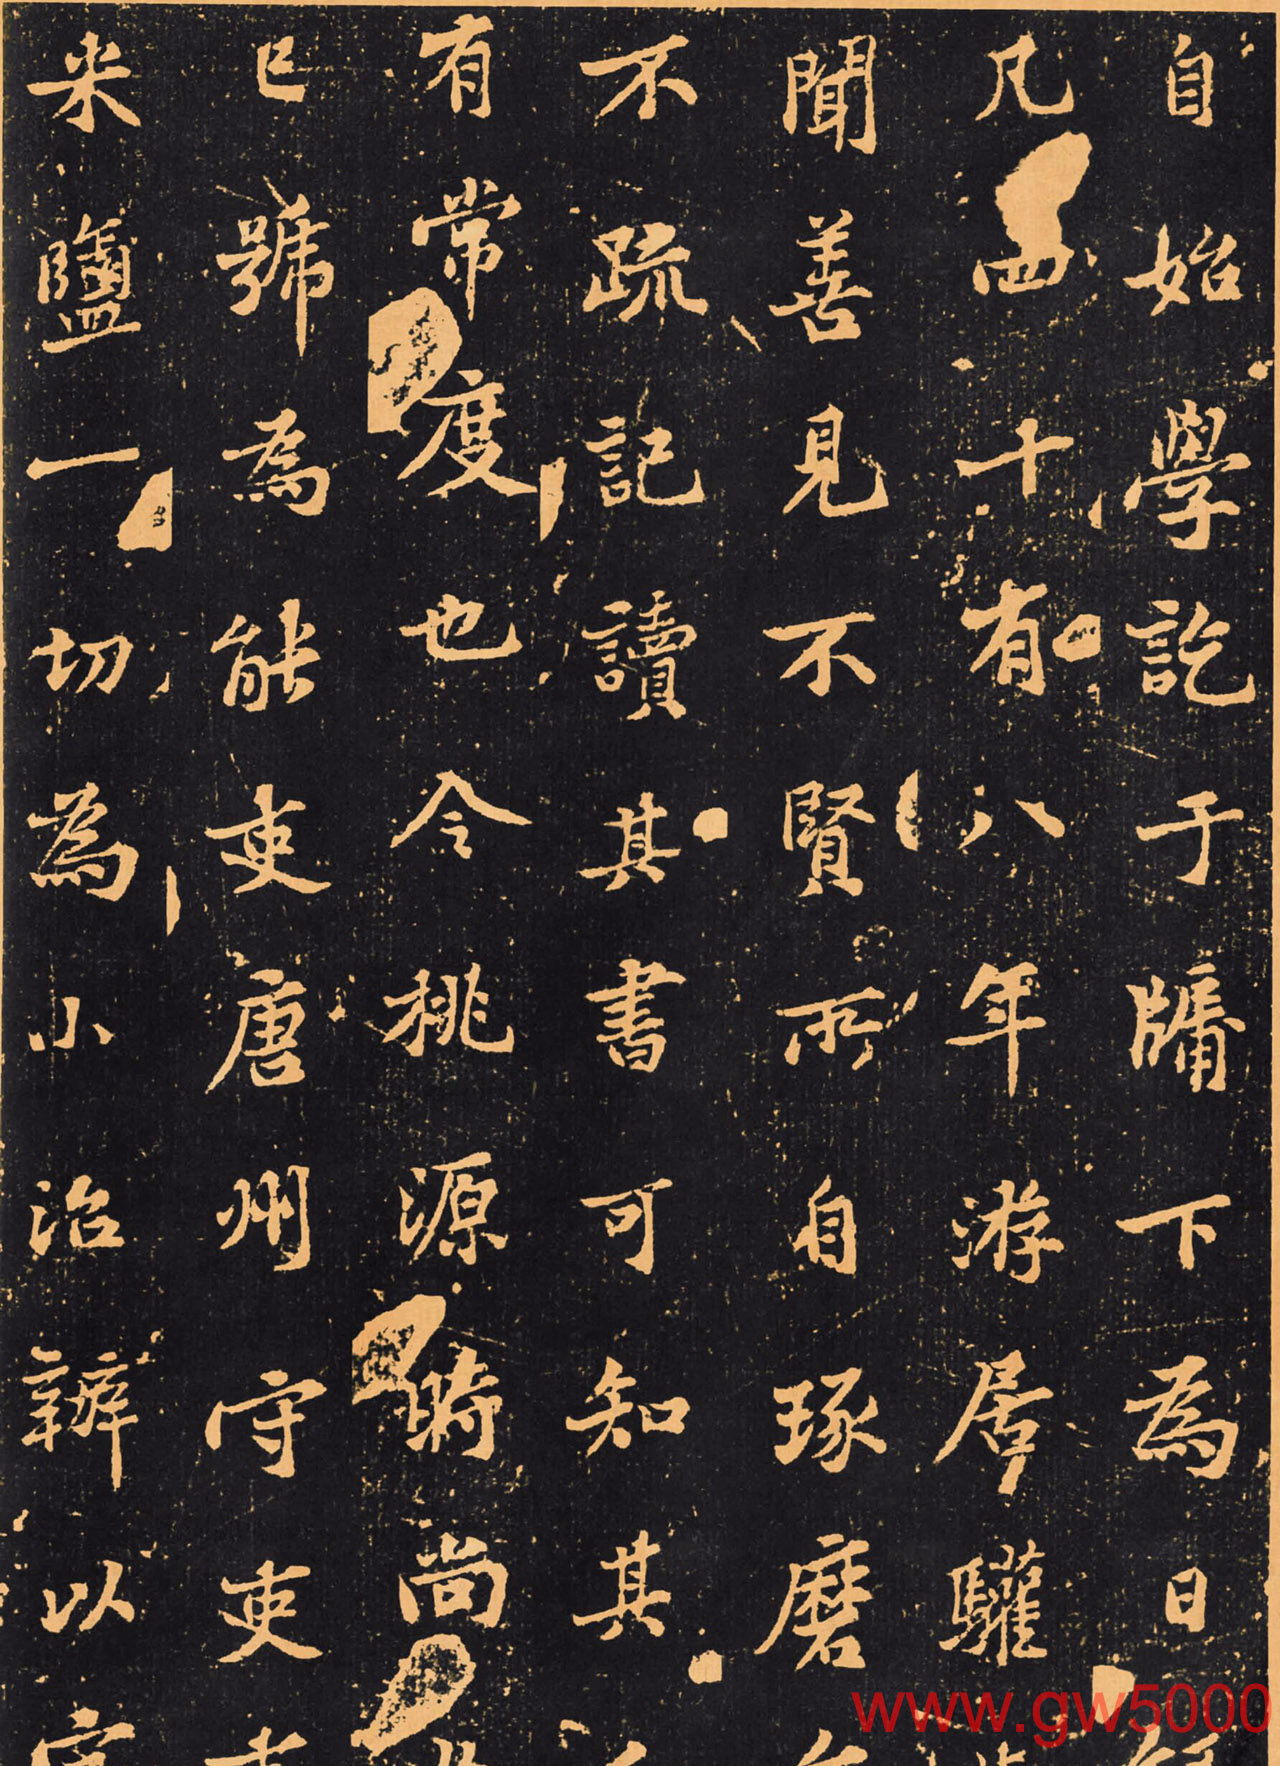 自始學訖于牖下為日
凡四十有八年游居驩
聞善見不賢所自琢磨
不疏記讀其書可知其
有常度也令桃源時尚
已號為能吏唐州守吏
米鹽一切為小治辦以
www.gw5000